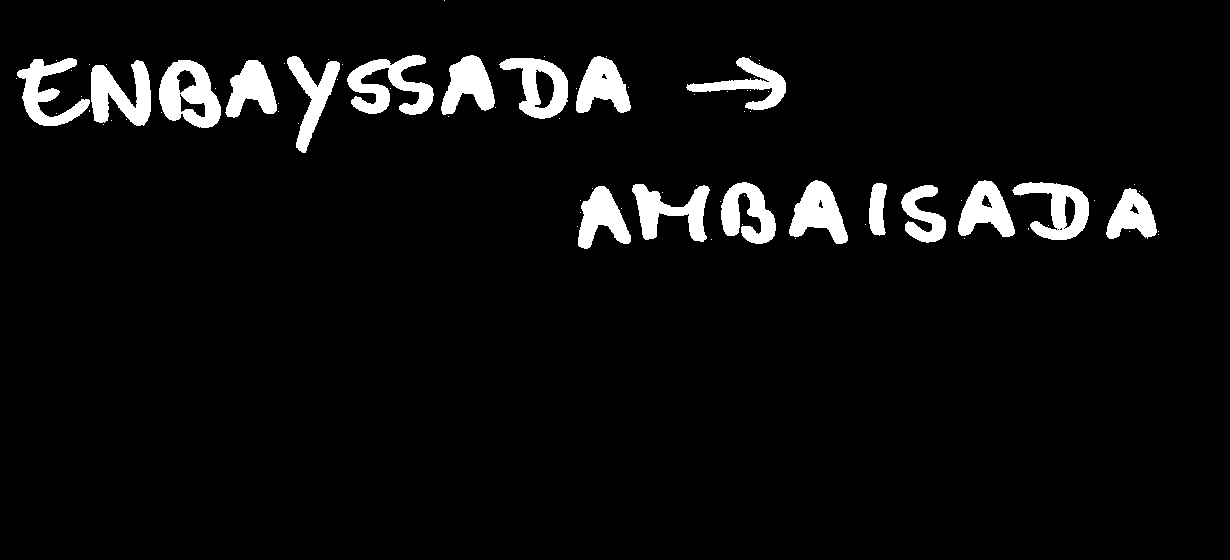 ENBAYSSADA →
AMBAISADA